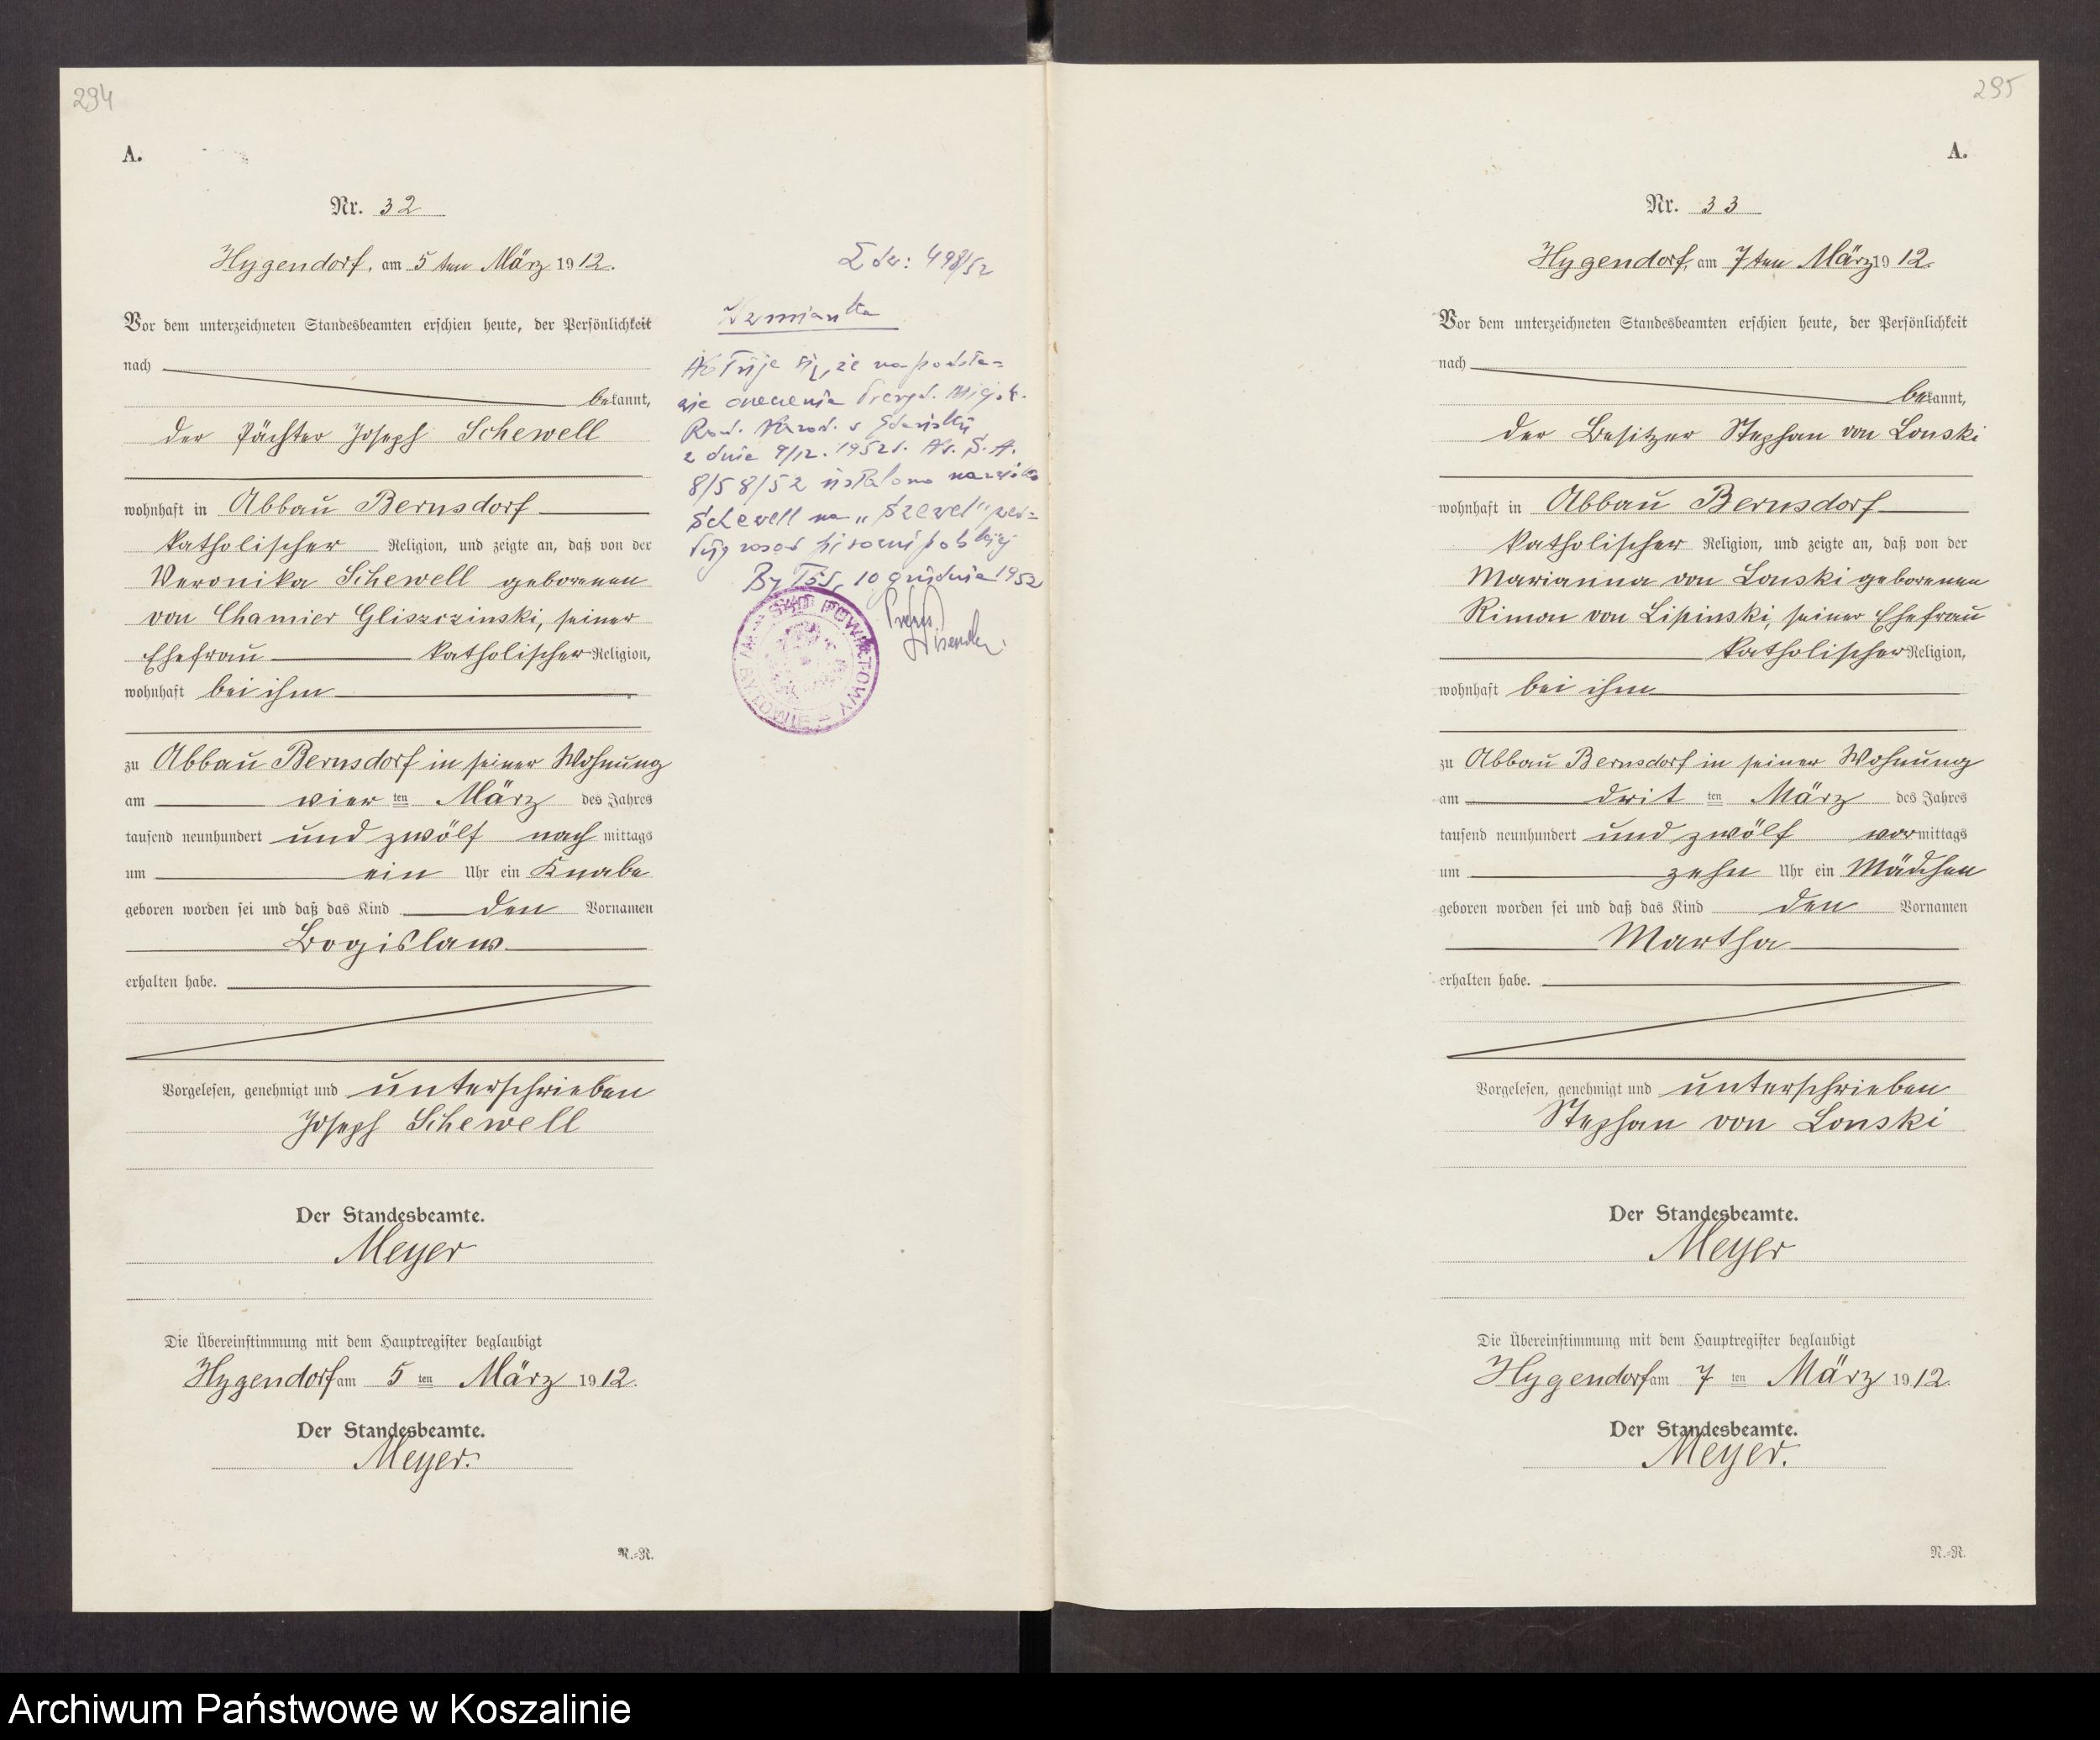 294
A.
Nr. 32
Hygendorf, am 5 ten März 1912.
Vor dem unterzeichneten Standesbeamten erschien heute, der Persönlichkeit
nach
bekannt,
der Pächter Joseph Schewell
wohnhaft in Abbau Bernsdorf
katholischer Religion, und zeigte an, daß von der
Veronika Schewell geborenen
von Chamier Gliszczinski, seiner
Ehefrau katholischer Religion,
wohnhaft bei ihm
zu Abbau Bernsdorf in seiner Wohnung
am vier ten März des Jahres
tausend neunhundert und zwölf nach mittags
um ein Uhr ein Knabe
geboren worden sei und daß das Kind den Vornamen
Bogislaw
erhalten habe.
Vorgelesen, genehmigt und unterschrieben
Joseph Schewell
Der Standesbeamte.
Meyer
Die Übereinstimmung mit dem Hauptregister beglaubigt
Hygendorf am 5 ten März 1912.
Der Standesbeamte.
Meyer.
R.=R.
498/52
Wzmianka
się, że na podsta=
wie orzeczenia Prezyd. Miejsk.
Rad. Narod. w Gdańsku
z dnia 9/12. 1952 r. Nr. S. A.
8/58/52 ustalono nazwisko
Schewell na „Szewel" wed=
ług zasad pisowni polskiej
Bytów, 10 grudnia 1952
SĄD POWIATOWY
W BYTOWIE
295
A.
Nr. 33
Hygendorf, am 7 ten März 1912.
Vor dem unterzeichneten Standesbeamten erschien heute, der Persönlichkeit
nach
bekannt,
der Besitzer Stephan von Lonski
wohnhaft in Abbau Bernsdorf
katholischer Religion, und zeigte an, daß von der
Marianna von Lonski geborenen
Rimon von Lipinski, seiner Ehefrau
katholischer Religion,
wohnhaft bei ihm
zu Abbau Bernsdorf in seiner Wohnung
am drit ten März des Jahres
tausend neunhundert und zwölf vor mittags
um zehn Uhr ein Mädchen
geboren worden sei und daß das Kind den Vornamen
Martha
erhalten habe.
Vorgelesen, genehmigt und unterschrieben
Stephan von Lonski
Der Standesbeamte.
Meyer
Die Übereinstimmung mit dem Hauptregister beglaubigt
Hygendorf am 7 ten März 1912.
Der Standesbeamte.
Meyer.
R.=R.
Archiwum Państwowe w Koszalinie